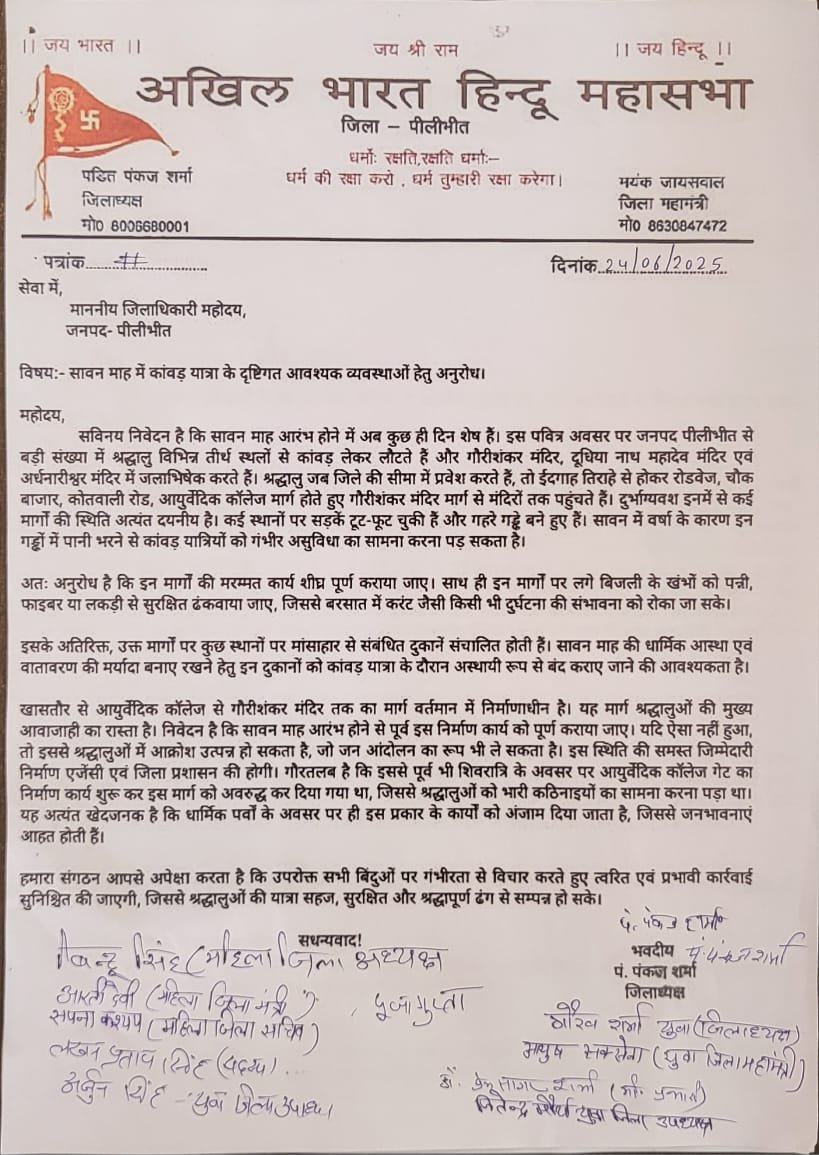 || जय भारत ||
जय श्री राम
|| जय हिन्दू ||
अखिल भारत हिन्दू महासभा
जिला – पीलीभीत
धर्मोः रक्षति,रक्षति धर्मोः–
धर्म की रक्षा करो , धर्म तुम्हारी रक्षा करेगा।
पडित पंकज शर्मा
जिलाध्यक्ष
मो0 8006680001
मयंक जायसवाल
जिला महामंत्री
मो0 8630847472
पत्रांक
दिनांक 24/06/2025
सेवा में,
माननीय जिलाधिकारी महोदय,
जनपद- पीलीभीत
विषय:- सावन माह में कांवड़ यात्रा के दृष्टिगत आवश्यक व्यवस्थाओं हेतु अनुरोध।
महोदय,
सविनय निवेदन है कि सावन माह आरंभ होने में अब कुछ ही दिन शेष हैं। इस पवित्र अवसर पर जनपद पीलीभीत से
बड़ी संख्या में श्रद्धालु विभिन्न तीर्थ स्थलों से कांवड़ लेकर लौटते हैं और गौरीशंकर मंदिर, दूधिया नाथ महादेव मंदिर एवं
अर्धनारीश्वर मंदिर में जलाभिषेक करते हैं। श्रद्धालु जब जिले की सीमा में प्रवेश करते हैं, तो ईदगाह तिराहे से होकर रोडवेज, चौक
बाजार, कोतवाली रोड, आयुर्वेदिक कॉलेज मार्ग होते हुए गौरीशंकर मंदिर मार्ग से मंदिरों तक पहुंचते हैं। दुर्भाग्यवश इनमें से कई
मार्गों की स्थिति अत्यंत दयनीय है। कई स्थानों पर सड़कें टूट-फूट चुकी हैं और गहरे गड्ढे बने हुए हैं। सावन में वर्षा के कारण इन
गड्ढों में पानी भरने से कांवड़ यात्रियों को गंभीर असुविधा का सामना करना पड़ सकता है।
अतः अनुरोध है कि इन मार्गों की मरम्मत कार्य शीघ्र पूर्ण कराया जाए। साथ ही इन मार्गों पर लगे बिजली के खंभों को पन्नी,
फाइबर या लकड़ी से सुरक्षित ढंकवाया जाए, जिससे बरसात में करंट जैसी किसी भी दुर्घटना की संभावना को रोका जा सके।
इसके अतिरिक्त, उक्त मार्गों पर कुछ स्थानों पर मांसाहार से संबंधित दुकानें संचालित होती हैं। सावन माह की धार्मिक आस्था एवं
वातावरण की मर्यादा बनाए रखने हेतु इन दुकानों को कांवड़ यात्रा के दौरान अस्थायी रूप से बंद कराए जाने की आवश्यकता है।
खासतौर से आयुर्वेदिक कॉलेज से गौरीशंकर मंदिर तक का मार्ग वर्तमान में निर्माणाधीन है। यह मार्ग श्रद्धालुओं की मुख्य
आवाजाही का रास्ता है। निवेदन है कि सावन माह आरंभ होने से पूर्व इस निर्माण कार्य को पूर्ण कराया जाए। यदि ऐसा नहीं हुआ,
तो इससे श्रद्धालुओं में आक्रोश उत्पन्न हो सकता है, जो जन आंदोलन का रूप भी ले सकता है। इस स्थिति की समस्त जिम्मेदारी
निर्माण एजेंसी एवं जिला प्रशासन की होगी। गौरतलब है कि इससे पूर्व भी शिवरात्रि के अवसर पर आयुर्वेदिक कॉलेज गेट का
निर्माण कार्य शुरू कर इस मार्ग को अवरुद्ध कर दिया गया था, जिससे श्रद्धालुओं को भारी कठिनाइयों का सामना करना पड़ा था।
यह अत्यंत खेदजनक है कि धार्मिक पर्वों के अवसर पर ही इस प्रकार के कार्यों को अंजाम दिया जाता है, जिससे जनभावनाएं
आहत होती हैं।
हमारा संगठन आपसे अपेक्षा करता है कि उपरोक्त सभी बिंदुओं पर गंभीरता से विचार करते हुए त्वरित एवं प्रभावी कार्रवाई
सुनिश्चित की जाएगी, जिससे श्रद्धालुओं की यात्रा सहज, सुरक्षित और श्रद्धापूर्ण ढंग से सम्पन्न हो सके।
सधन्यवाद!
पं. पंकज शर्मा
भवदीय पं. पंकज शर्मा
पं. पंकज शर्मा
जिलाध्यक्ष
सिंह (महिला जिला अध्यक्ष
आरती देवी (महिला जिला मंत्री), पूजा गुप्ता
सपना कश्यप (महिला जिला सचिव)
लखन प्रताप सिंह (सदस्य).
अर्जुन सिंह - युवा जिला उपाध्य
गौरव शर्मा युवा (जिलाध्यक्ष)
(युवा जिला महामंत्री)
डॉ. प्रेम सागर शर्मा
जितेन्द्र मौर्य युवा जिला उपाध्यक्ष